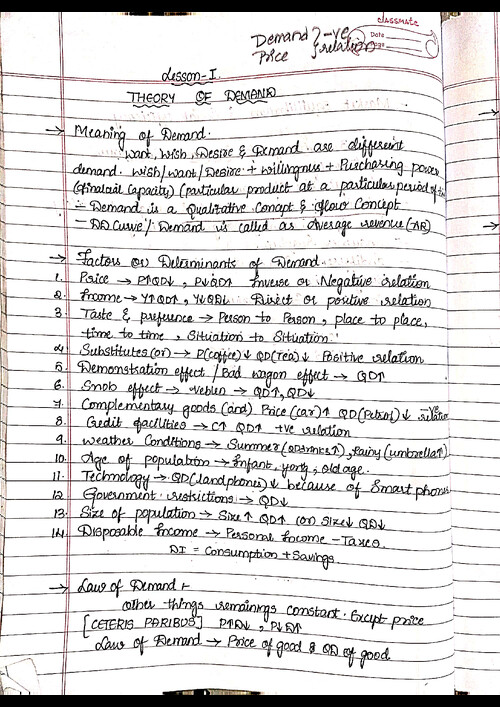 classmate
Date
Page
Demand } -ve
Price } relation
Lesson-I.
THEORY OF DEMAND
→ Meaning of Demand.
Want, Wish, Desire & Demand are different
demand. Wish/Want/Desire + willingness + Purchasing power
(financial capacity) (particular product at a particular period of
- Demand is a Qualitative Concept & flow Concept
- DD Curve/ Demand is called as Average revenue (AR)
→ Factors or Determinants of Demand.
1. Price → P↑QD↓, P↓QD↑ Inverse or Negative relation
2. Income → Y↑QD↑, Y↓QD↓ Direct or positive relation
3. Taste & preference → Person to Person, place to place,
time to time, Situation to Situation
4. Substitutes (or) → P(coffee)↓ QD(Tea)↓ Positive relation
5. Demonstration effect / Bad wagon effect → QD↑
6. Snob effect → Veblen → QD↑, QD↓
7. Complementary goods (and) Price (car)↑ QD(Petrol)↓ -ve relation
8. Credit facilities → C↑ QD↑ +ve relation
9. Weather Conditions → Summer (QD↑), Rainy (umbrella↑)
10. Age of population → Infant, yong, old age.
11. Technology → QD(landphones)↓ because of Smart phones
12. Government restrictions → QD↓
13. Size of population → Size↑ QD↑ (or) Size↓ QD↓
14. Disposable Income → Personal Income - Taxes
DI = Consumption + Savings
→ Law of Demand :-
other things remainings constant. Except price
[CETERIS PARIBUS] P↑D↓, P↓D↑
Law of Demand → Price of good & QD of good